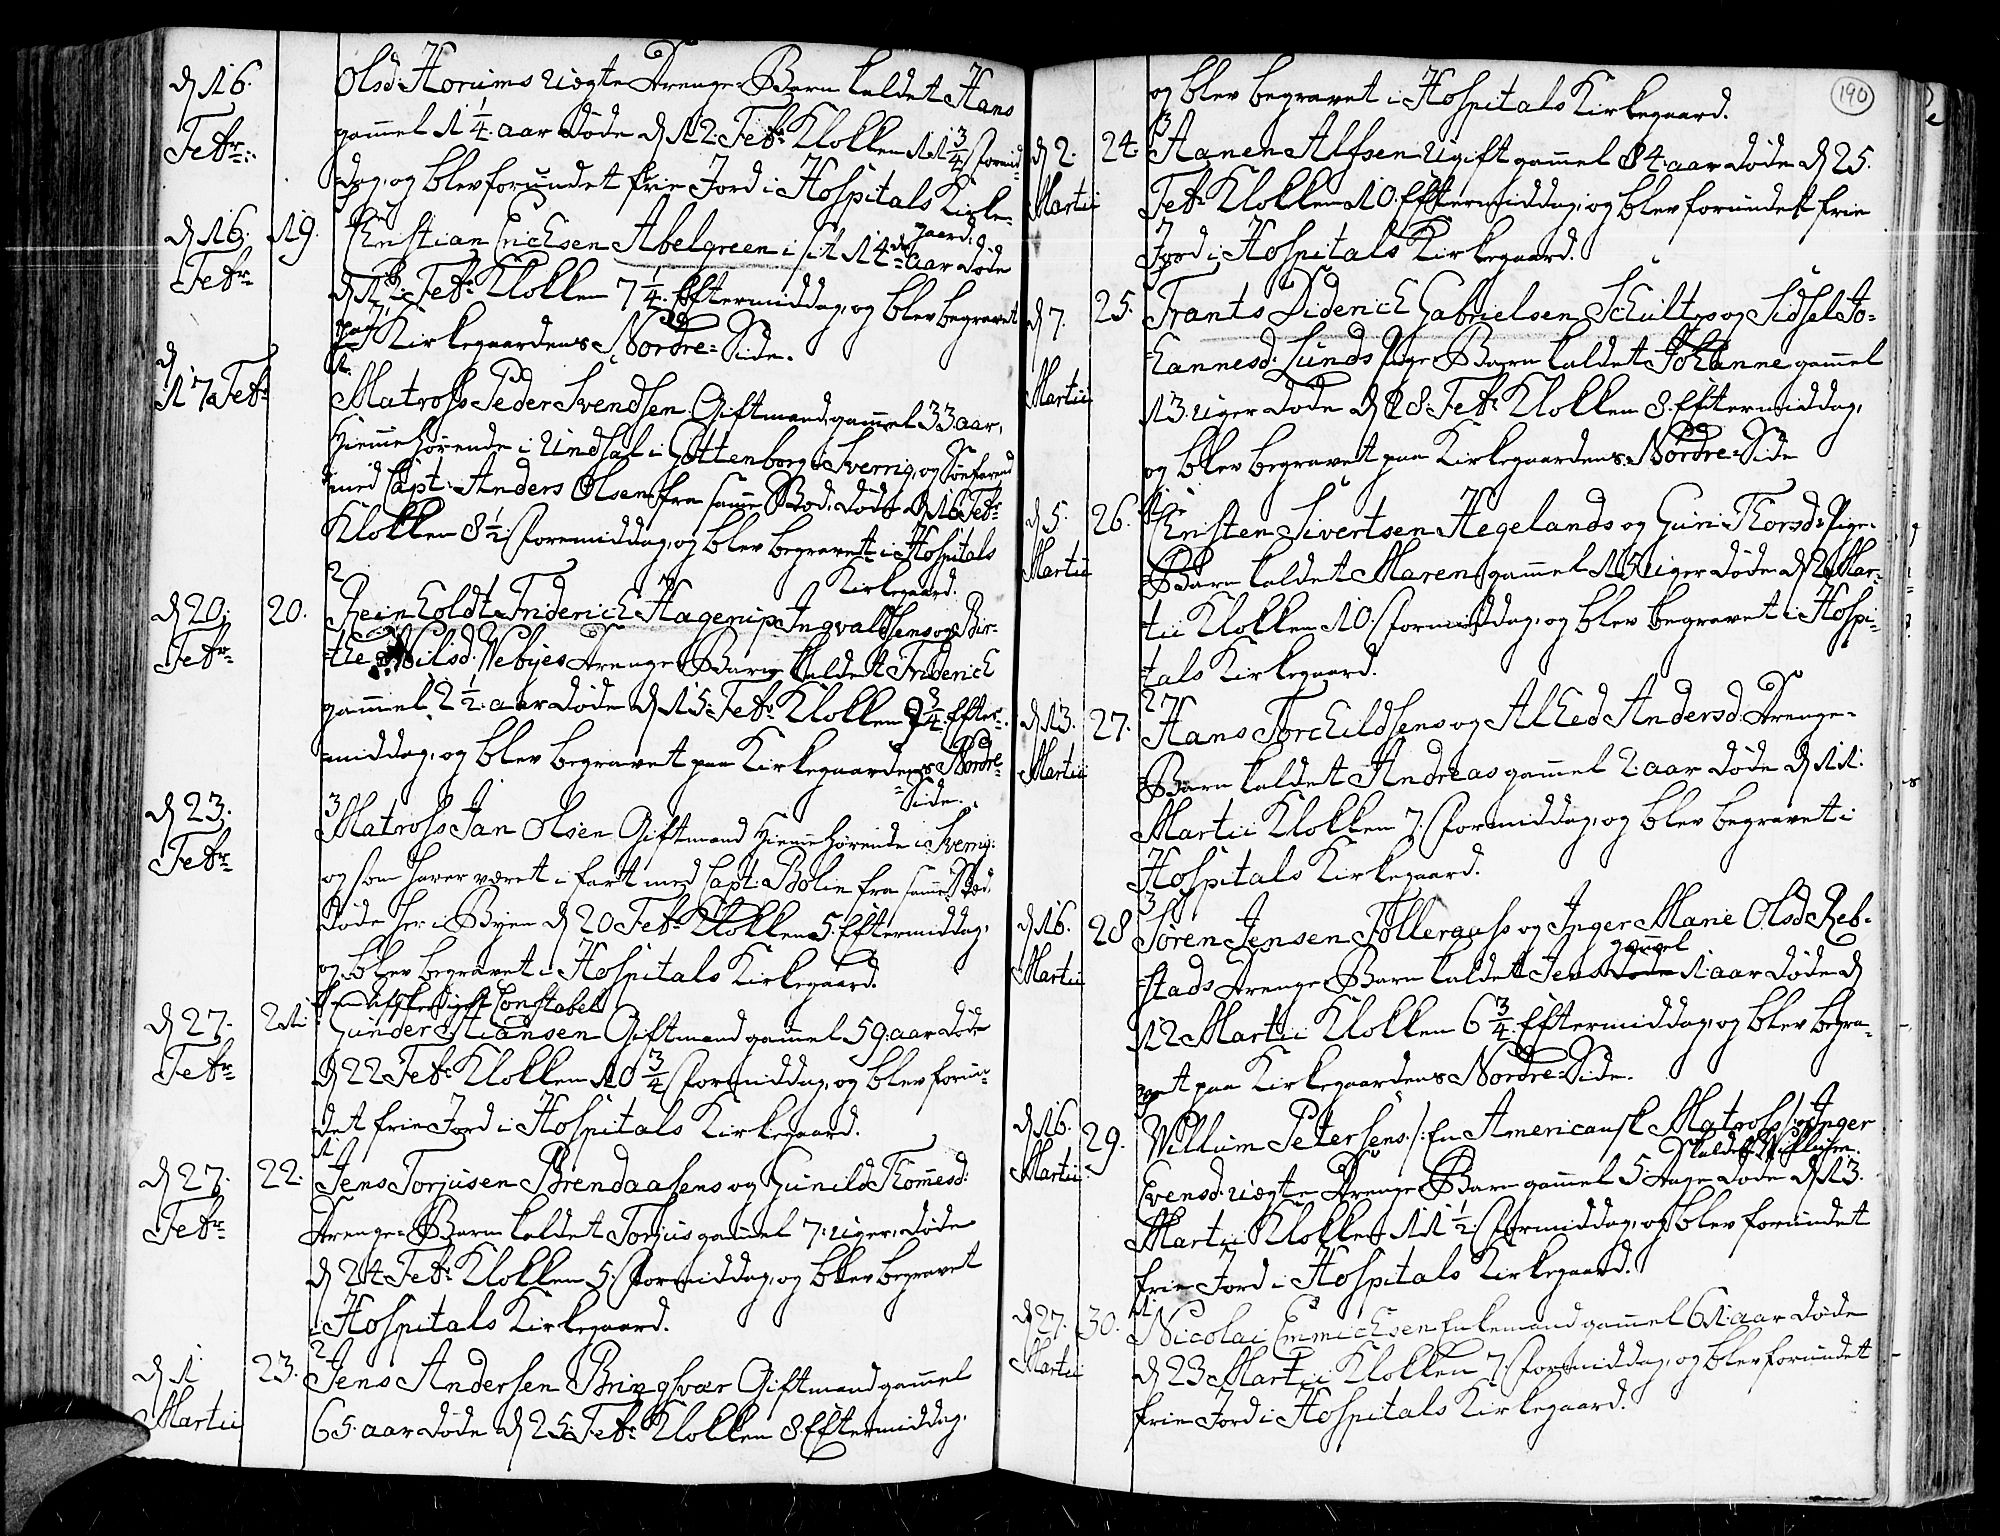 d 16. Olsd: Horums uægte Drenge-Barn kaldet Hans
Febr: gammel 1 1/4 aar døde d 12. Febr: Klokken 11 3/4 formid-
dag, og blev forundet frie Jord i Hospitals Kirke-
gaard.
d 16. 19. Christian Erichsen Abelgreen i sit 14de aar døde
Febr: d 12: Febr: Klokken 7 1/4. Eftermiddag, og blev begravet
paa Kirkegaardens Nordre-Side.
d 17 Febr: Matross Peder Svendsen Giftmand, gammel 33 aar,
Hiemmehørende i Undsal i Gottenborg i Sverrig, og Søefarend
med Capt: Anders Olsen fra samme Stæd, døde d 16 Febr:
Klokken 8 1/2. formiddag, og blev begravet i Hospitals
Kirkegaard.
2
d 20. 20. Reinholdt Friderich Hagerup Ingvaldsens og Bir-
Febr: the Nilsd: Nebyes Drenge-Barn kaldet Friderich
gammel 2 1/2. aar døde d 15. Febr: Klokken 9 3/4. Efter-
middag, og blev begravet paa Kirkegaardens Nordre-
Side.
3
d 23. Matross Jan Olsen Giftmand Hiemmehørende i Sverrig:
Febr: og som haver været i fart med Capt: Bolin fra samme Stæd,
døde her i Byen d 20 Febr: Klokken 5. Eftermiddag,
og blev begravet i Hospitals Kirkegaard.
Constabel
d 27. 21. Gunder Stiansen Giftmand gammel 59. aar døde
Febr: d 22 Febr: Klokken 10 3/4 formiddag, og blev forun-
det frie Jord i Hospitals Kirkegaard.
1
d 27. 22. Jens Torjusen Brendaasens og Gunild Thomesd:
Febr: Drenge-Barn kaldet Torjus gammel 7. uger, døde
d 24 Febr: Klokken 5. formiddag, og blev begravet
i Hospitals Kirkegaard.
2
d 1 23. Jens Andersen Bringsvær Giftmand gammel
Martii 65. aar døde d 25 Febr: Klokken 8. Eftermiddag,
190
og blev begravet i Hospitals Kirkegaard.
3
d 2. 24. Hanen Alfsen Ugift gammel 84. aar døde d 25.
Martii Febr: Klokken 10. Eftermiddag, og blev forundet frie
Jord i Hospitals Kirkegaard.
d 7. 25. Frants Diderich Gabrielsen Schultz og Sidsel Jo-
hannesd: Lunds Pige-Barn kaldet Johanne gammel
Martii 13. uger døde d 28. Febr: Klokken 8. Eftermiddag,
og blev begravet paa Kirkegaardens Nordre-Side
1
d 5. 26. Christen Sivertsen Hegelands og Guri Thorsd: Pige-
Martii Barn kaldet Maren gammel 15 uger døde d 2 Mar-
tii Klokken 10. formiddag, og blev begravet i Hospi-
tals Kirkegaard.
2
d 13. 27. Hans Torchildsens og Alhed Andersd: Drenge-
Martii Barn kaldet Andreas gammel 2. aar døde d 11.
Martii Klokken 7. formiddag, og blev begravet i
Hospitals Kirkegaard.
3
d 16. 28 Søren Jensen Tolleraass og Inger Marie Olsd: Reb-
gammel
Martii stads Drenge-Barn kaldet Jens døde 1. aar døde d
12 Martii Klokken 6 3/4. Eftermiddag, og blev begra-
vet paa Kirkegaardens Nordre-Side.
d 16. 29. Willum Petersens /: En Americansk Matross :/ og Inger
kaldet Willum.
Martii Evensd: uægte Drenge-Barn gammel 5. dage døde d 13.
Martii Klokken 11 1/2. formiddag, og blev forundet
frie Jord i Hospitals Kirkegaard.
1
d 27. 30. Nicolai Emmichsen Enkemand gammel 61. aar døde
Martii d 23 Martii Klokken 7. formiddag, og blev forundet
frie Jord i Hospitals Kirkegaard.